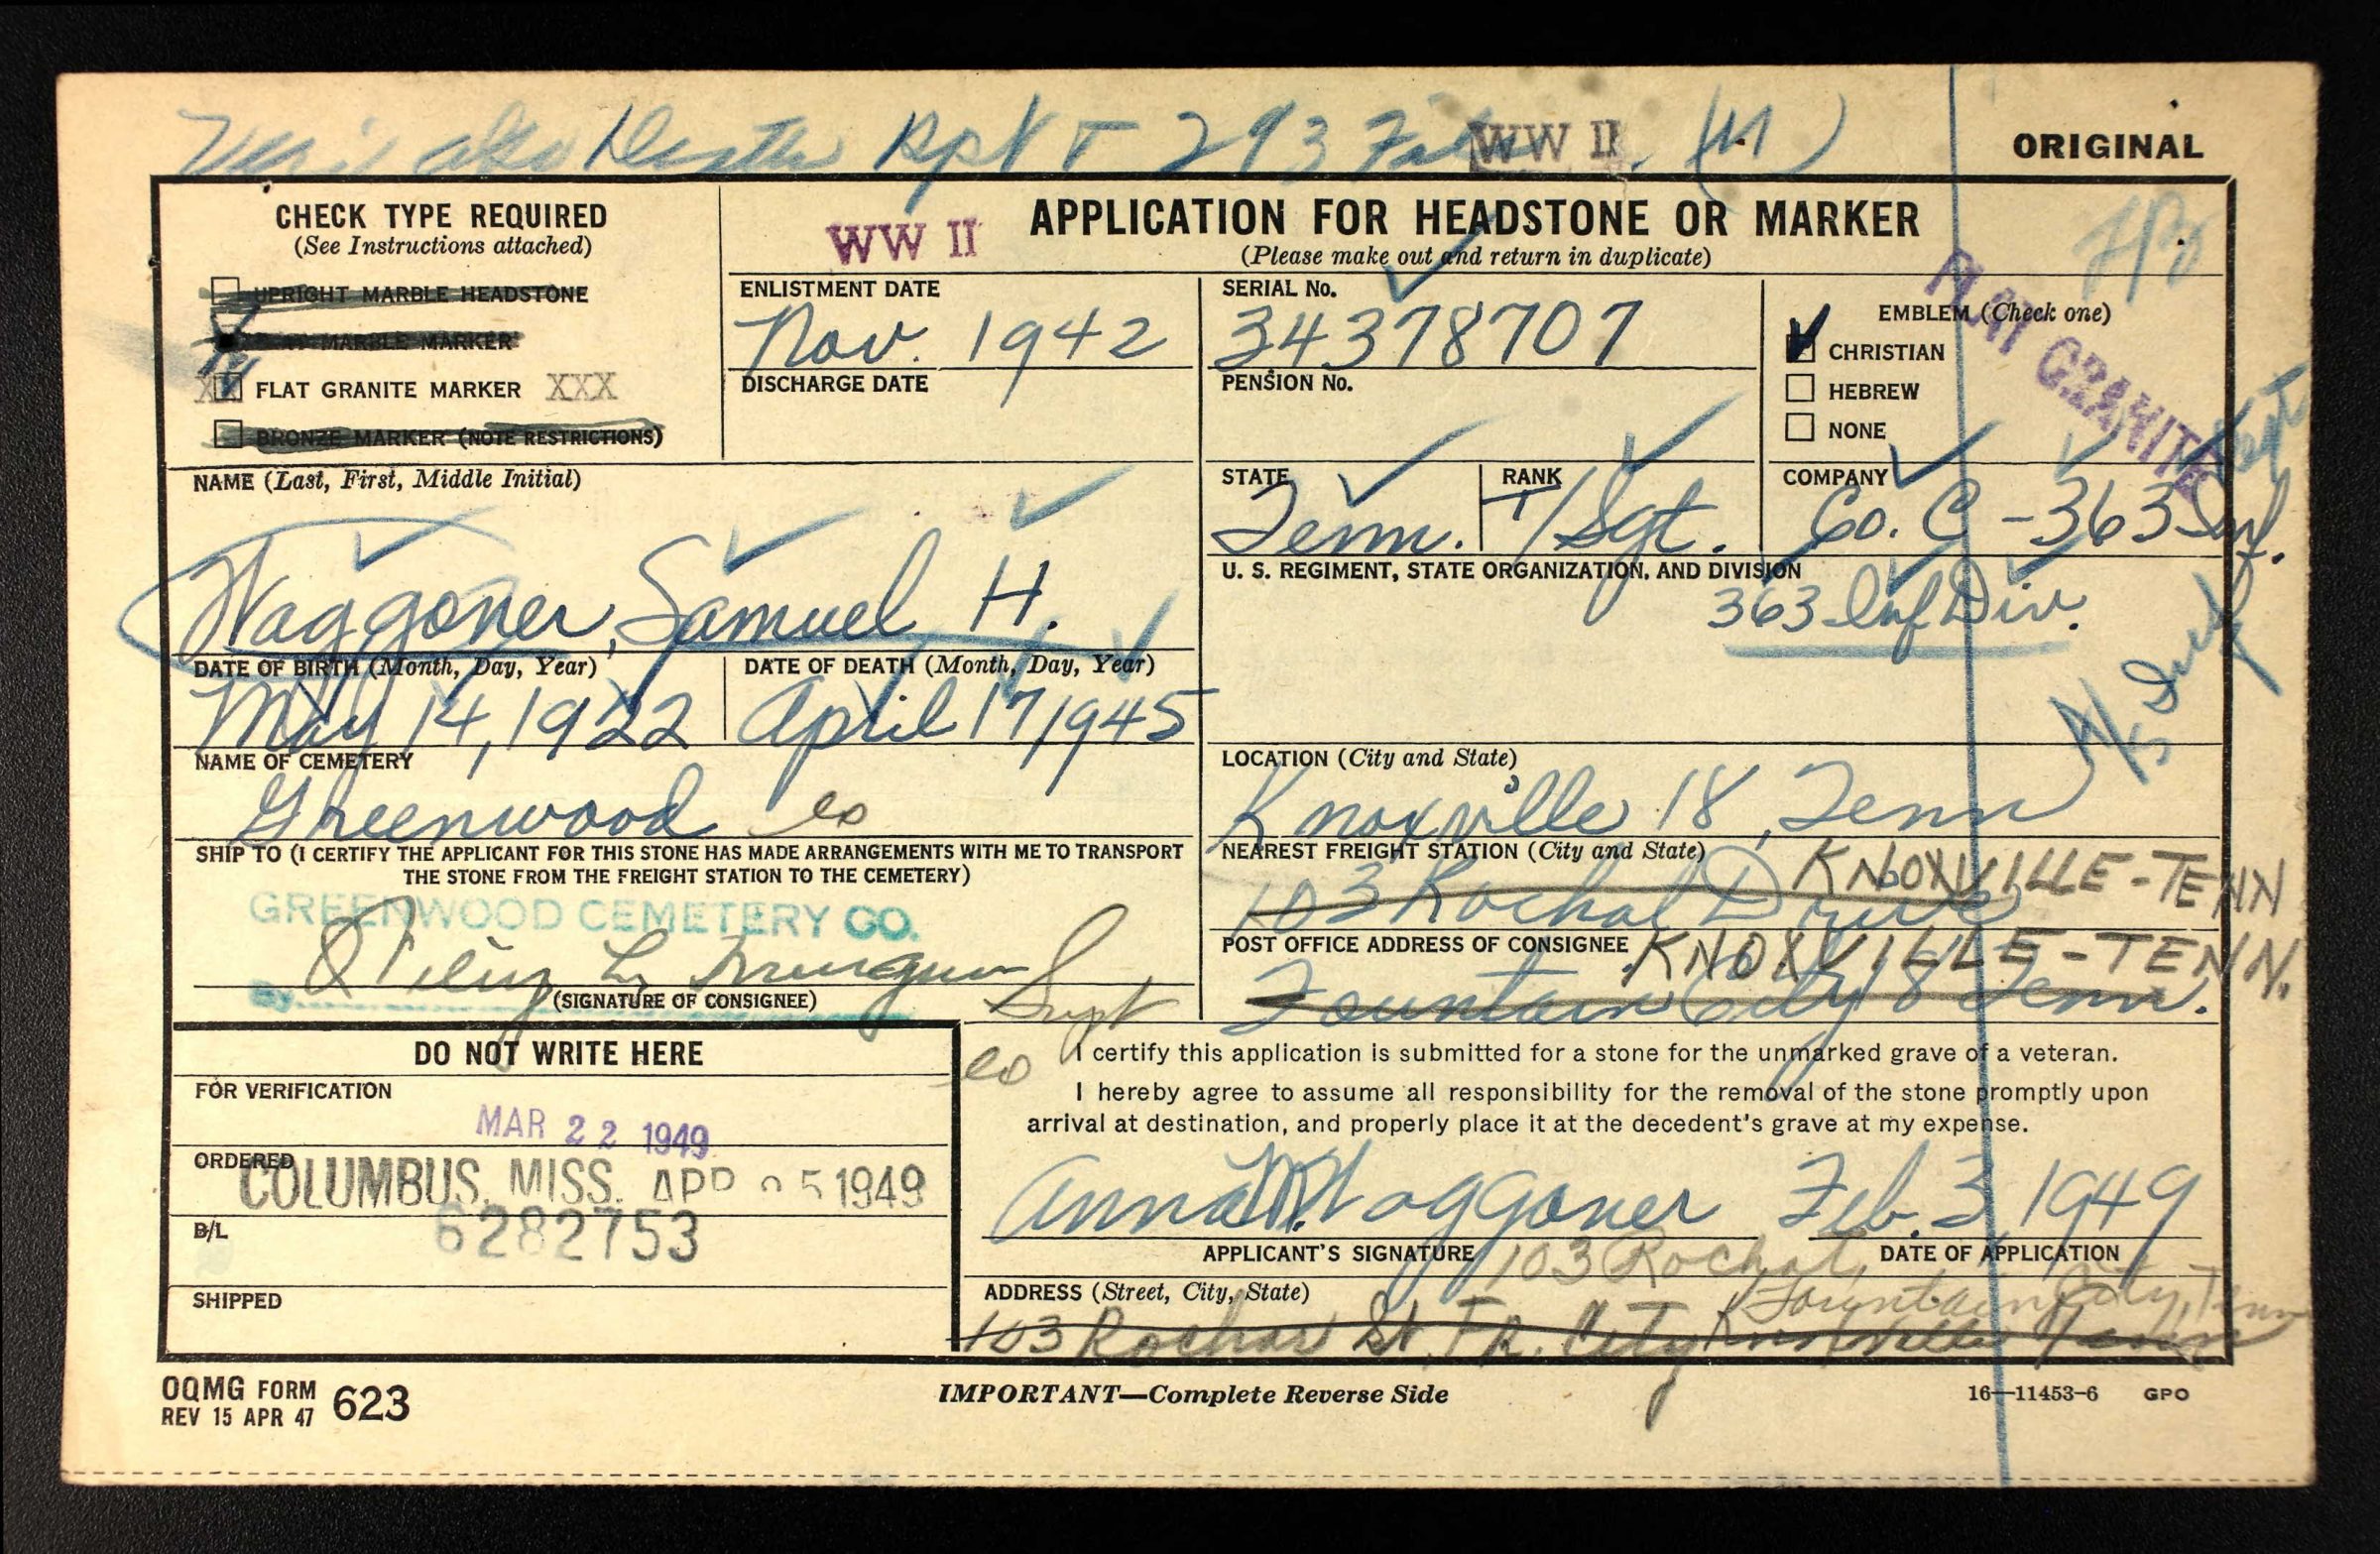 Death Rpt + 293 File WW II (M)
ORIGINAL
CHECK TYPE REQUIRED
(See Instructions attached)
UPRIGHT MARBLE HEADSTONE
MARBLE MARKER
XX FLAT GRANITE MARKER XXX
BRONZE MARKER (NOTE RESTRICTIONS)
WW II
APPLICATION FOR HEADSTONE OR MARKER
(Please make out and return in duplicate)
ENLISTMENT DATE
Nov. 1942
DISCHARGE DATE
SERIAL No.
34378707
PENSION No.
EMBLEM (Check one)
CHRISTIAN
HEBREW
NONE
FLAT GRANITE
NAME (Last, First, Middle Initial)
Waggoner, Samuel H.
STATE
Tenn.
RANK
T/Sgt.
COMPANY
Co. C - 363 Inf.
U. S. REGIMENT, STATE ORGANIZATION, AND DIVISION
363 Inf Div.
DATE OF BIRTH (Month, Day, Year)
May 14, 1922
DATE OF DEATH (Month, Day, Year)
April 17 1945
NAME OF CEMETERY
Greenwood co
LOCATION (City and State)
Knoxville 18, Tenn
SHIP TO (I CERTIFY THE APPLICANT FOR THIS STONE HAS MADE ARRANGEMENTS WITH ME TO TRANSPORT
THE STONE FROM THE FREIGHT STATION TO THE CEMETERY)
GREENWOOD CEMETERY CO.
By
Supt
(SIGNATURE OF CONSIGNEE)
NEAREST FREIGHT STATION (City and State)
KNOXVILLE-TENN
103 Rochat Drive
POST OFFICE ADDRESS OF CONSIGNEE
KNOXVILLE-TENN.
Fountain City 18 Tenn.
DO NOT WRITE HERE
FOR VERIFICATION
MAR 22 1949
ORDERED
COLUMBUS, MISS. APR 25 1949
B/L
6282753
SHIPPED
co
I certify this application is submitted for a stone for the unmarked grave of a veteran.
I hereby agree to assume all responsibility for the removal of the stone promptly upon
arrival at destination, and properly place it at the decedent's grave at my expense.
Anna M. Waggoner Feb. 3, 1949
APPLICANT'S SIGNATURE
DATE OF APPLICATION
103 Rochat,
Fountain City, Tenn
ADDRESS (Street, City, State)
103 Rochat St. Ft. City Knoxville Tenn
OQMG FORM 623
REV 15 APR 47
IMPORTANT—Complete Reverse Side
16—11453-6 GPO